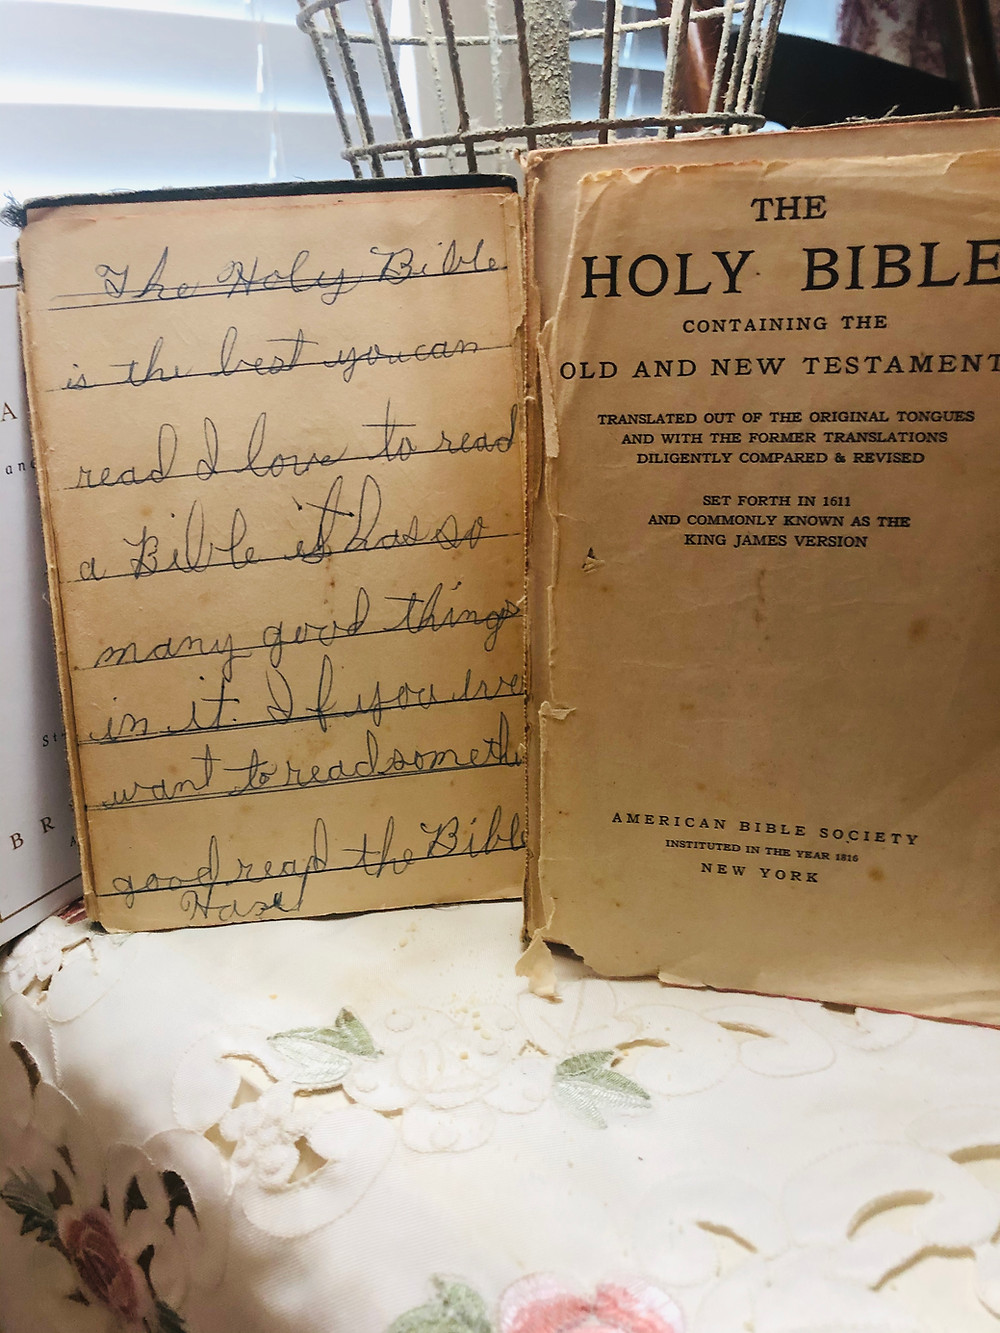 The Holy Bible
is the best you can
read I love to read
a Bible it has so
many good things
in it. If you
want to read somethi
good read the Bible
Hazel
THE
HOLY BIBLE
CONTAINING THE
OLD AND NEW TESTAMENT
TRANSLATED OUT OF THE ORIGINAL TONGUES
AND WITH THE FORMER TRANSLATIONS
DILIGENTLY COMPARED & REVISED
SET FORTH IN 1611
AND COMMONLY KNOWN AS THE
KING JAMES VERSION
AMERICAN BIBLE SOCIETY
INSTITUTED IN THE YEAR 1816
NEW YORK
A
ane
St
B R